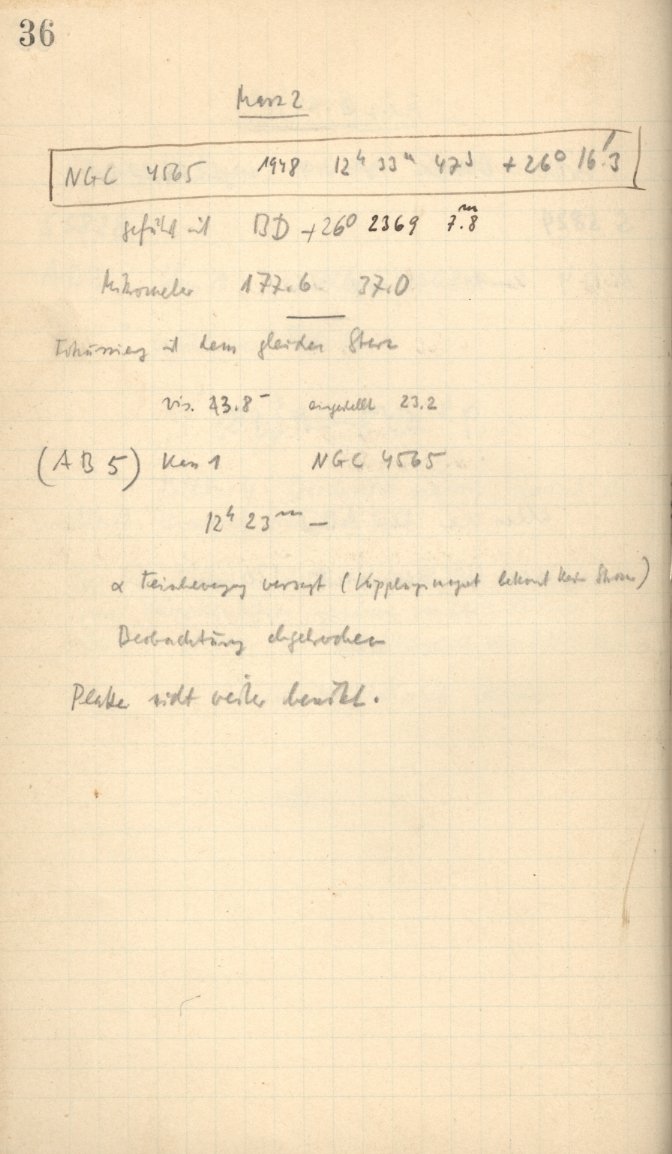 36
März 2
NGC 4565 1948 12h 33m 47s +26° 16!3
geführt mit BD +26° 2369 7.8m
Mikrometer 177.6 37.0
Fokussierung mit dem gleichen Stern
vis. 23.8- eingestellt 23.2
(AB 5) Kas 1 NGC 4565
12h 23m —
α Feinbewegung versagt (Kupplungsmagnet bekommt kein Strom)
Beobachtung abgebrochen
Platte nicht weiter benützt.